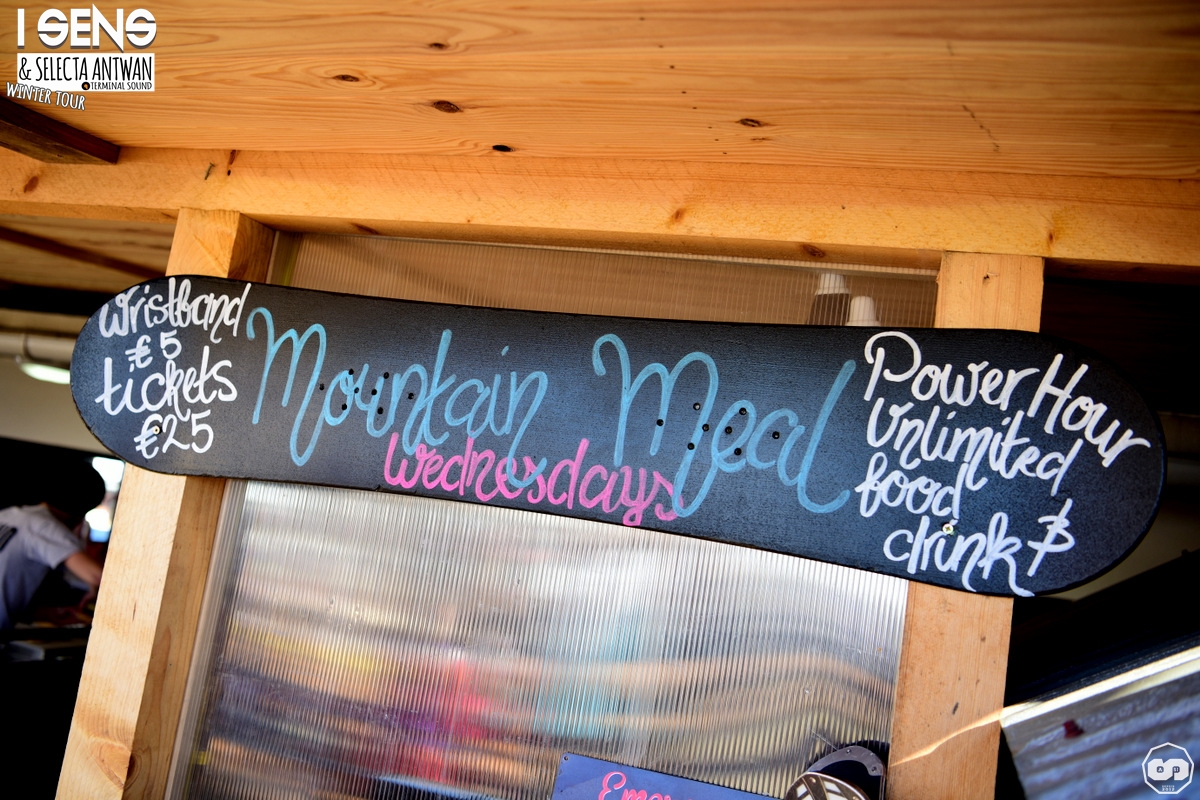 I SENS
& SELECTA ANTWAN
TERMINAL SOUND
WINTER TOUR
Wristband
€5
tickets
€25
Mountain Meal
Wednesdays
Power Hour
Unlimited
food &
drink